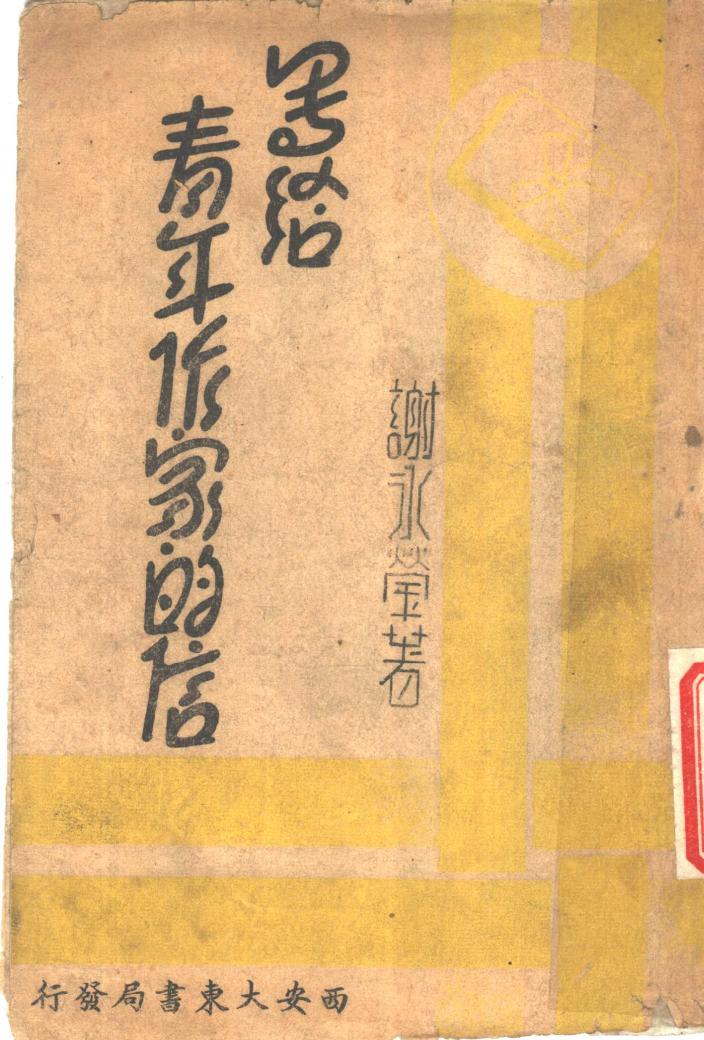 寫給
青年作家的信
謝氷瑩著
西安大東書局發行